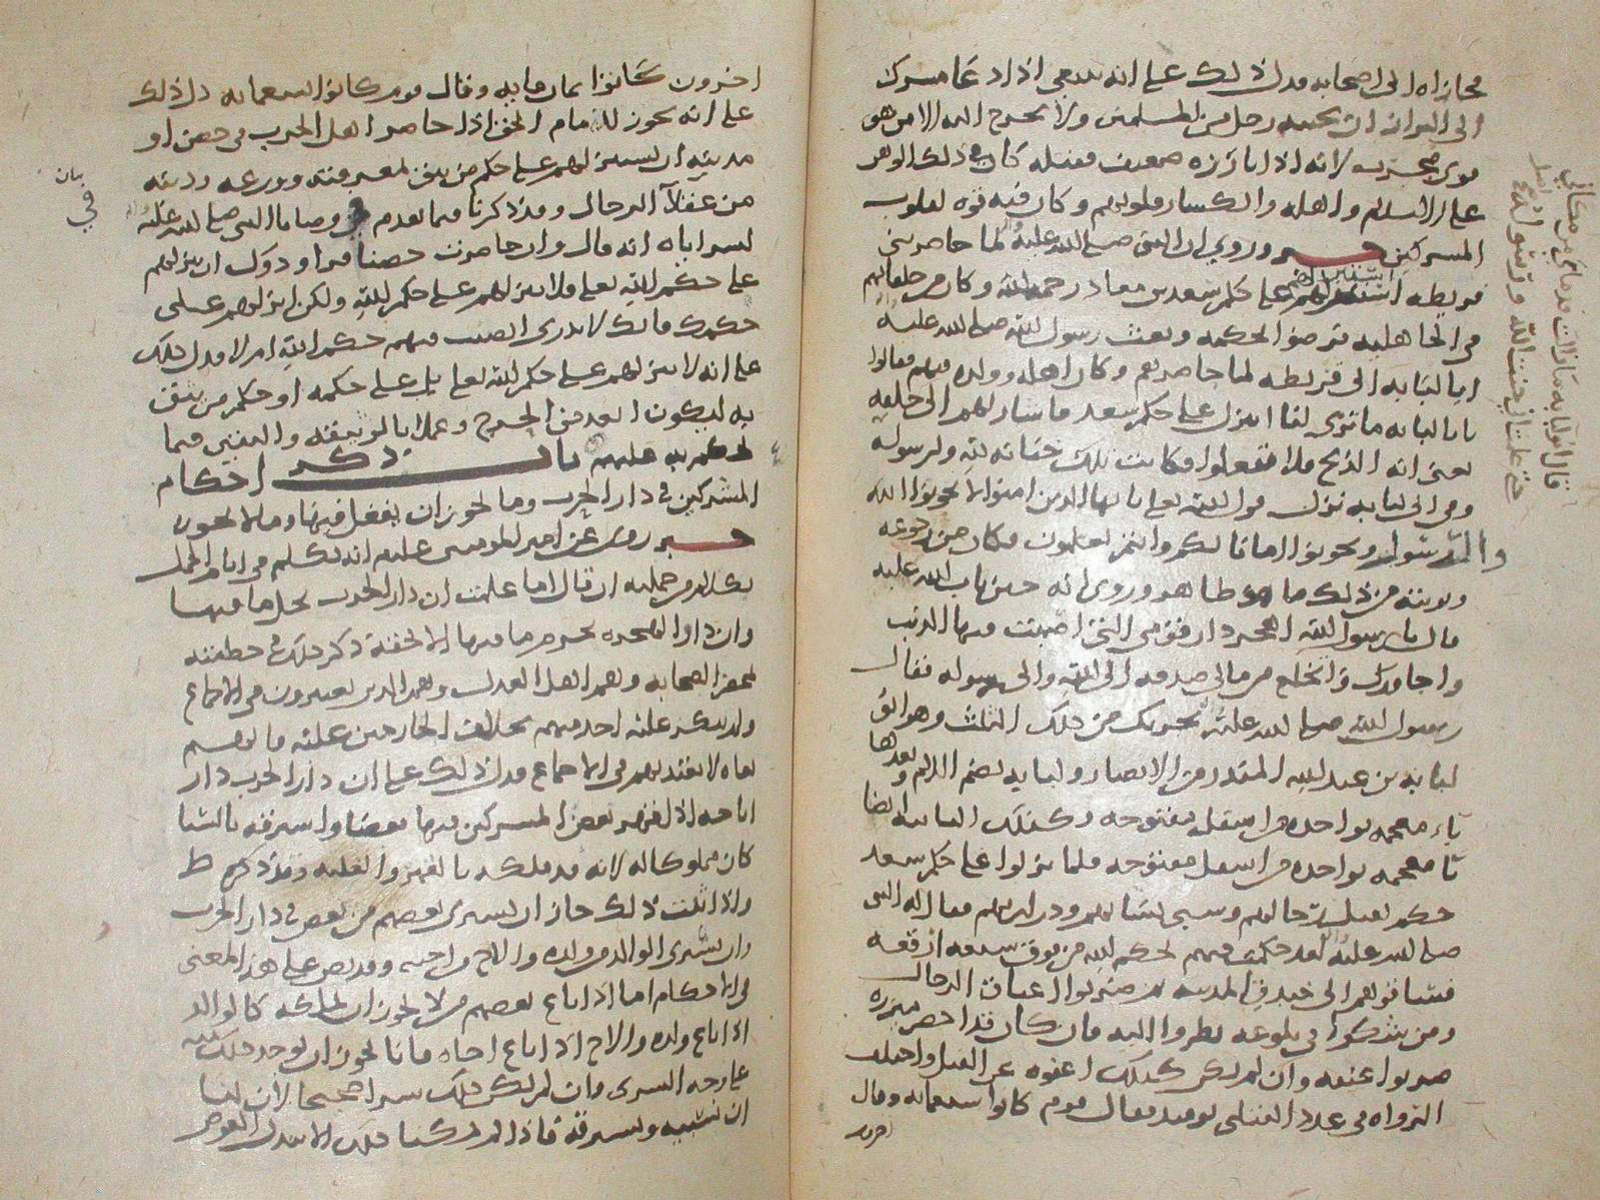 الى اصحابه فدل ذلك على انه ينبغي اذا دعا مشرك
الى البراز ان يجيبه رجل من المسلمين ولا يخرج اليه الا من هو
لانه اذا بارزه ضعيف فقتله كان في ذلك الوهن
على الاسلام واهله وانكسار قلوبهم وكان فيه قوة لقلوب
المشركين خبر وروي ان النبي صلى الله عليه لما حاصر بني
قريظة على حكم سعد بن معاذ رحمه الله وكان من حلفائهم
في الجاهلية فرضوا بحكمه وبعث رسول الله صلى الله عليه
ابا لبابه الى قريظه لما حاصرهم وكان اهله وولده فيهم فقالوا
يا ابا لبابه ما ترى لنا اننزل على حكم سعد فاشار لهم الى حلقه
يعني انه الذبح فلا تفعلوا فكانت تلك خيانه لله ولرسوله
وفي ابي لبابه نزل قول الله تعالى يا ايها الذين امنوا لا تخونوا الله
والرسول وتخونوا اماناتكم وانتم تعلمون فكان من
وتوبته من ذلك ما هو ظاهر وروي انه حين تاب الله عليه
قال يا رسول الله اهجر دار قومي التي اصبت فيها الذنب
وانخلع من مالي صدقه الى الله والى رسوله فقال
رسول الله صلى الله عليه يجزيك من ذلك الثلث وهو ابو
لبابه بن عبد المنذر من الانصار ولبابه بضم اللام وبعدها
باء معجمه بواحده من اسفل مفتوحه وكذلك الباء ايضا
معجمه بواحده من اسفل مفتوحه فلما نزلوا على حكم سعد
حكم بقتل رجالهم وسبي نسائهم وذراريهم فقال له النبي
صلى الله عليه لقد حكمت فيهم بحكم الله من فوق سبعه ارقعه
الى خندق المدينه ثم ضربوا اعناق الرجال
ومن شكوا في بلوغه نظروا اليه فان كان قد اخضر مئزره
ضربوا عنقه وان لم يكن كذلك اعفوه عن القتل واختلف
الرواه في عدد القتلى يومئذ فقال قوم كانوا سبعمائه وقال
اخرون
قال ابو لبابه ما زالت قدماي من مكاني
حتى علمت اني خنت الله ورسوله
اخرون كانوا ثمان مايه وقال قوم كانوا تسعمائه دل ذلك
على انه يجوز للامام المحق اذا حاصر اهل الحرب في حصن او
مدينه ان يستنزلهم على حكم من يثق بمعرفته وورعه ودينه
من عقلاء الرجال وقد ذكرنا فيما تقدم في وصايا النبي صلى الله عليه
لسراياه انه قال وان حاصرت حصنا فراودوك ان تنزلهم
على حكم الله تعالى فلا تنزلهم على حكم الله ولكن انزلهم على
حكمك فانك لا تدري اتصيب فيهم حكم الله ام لا فدل ذلك
على انه لا ينزلهم على حكم الله تعالى بل على حكمه او حكم من يثق
به ليكون ابعد من الحرج وعملا بالوثيقه واليقين فيما
يحكم به عليهم باب ذكر احكام
المشركين في دار الحرب وما يجوز ان يفعل فيها وما لا يجوز
خبر روي عن امير المومنين عليه انه تكلم في ايام الجمل
بكلام من جملته ان قال اما علمت ان دار الحرب يحل ما فيها
وان دار الهجره يحرم ما فيها الا بحقه ذكر ذلك في خطبته
بمحضر الصحابه وهم اهل العدل وهم الذين يعتبرون في الاجماع
ولم ينكر عليه احد منهم بخلاف الخارجين عليه
لا يعتد بهم في الاجماع فدل ذلك على ان دار الحرب دار
اباحه اذا قهر بعض المشركين فيها بعضا واسترقه بالسبا
كان مملوكا له لانه قد ملكه بالقهر والغلبه
واذا ثبت ذلك جاز ان يشتري بعضهم من بعض في دار الحرب
وان يشتري الوالد من ولده والاخ من اخيه وقد نص على هذا المعنى
في الاحكام اما اذا باع بعضهم من لا يجوز ان يملكه كالوالد
اذا باع ولده والاخ اذا باع اخاه فانا نجوز ان يوجد ذلك منه
على وجه الشرى وان لم يكن ذلك شرا صحيحا لان لنا
ان نسبيه ونسترقه فاذا لم يمكنا ذلك الا ببذل العوض
بيان
في